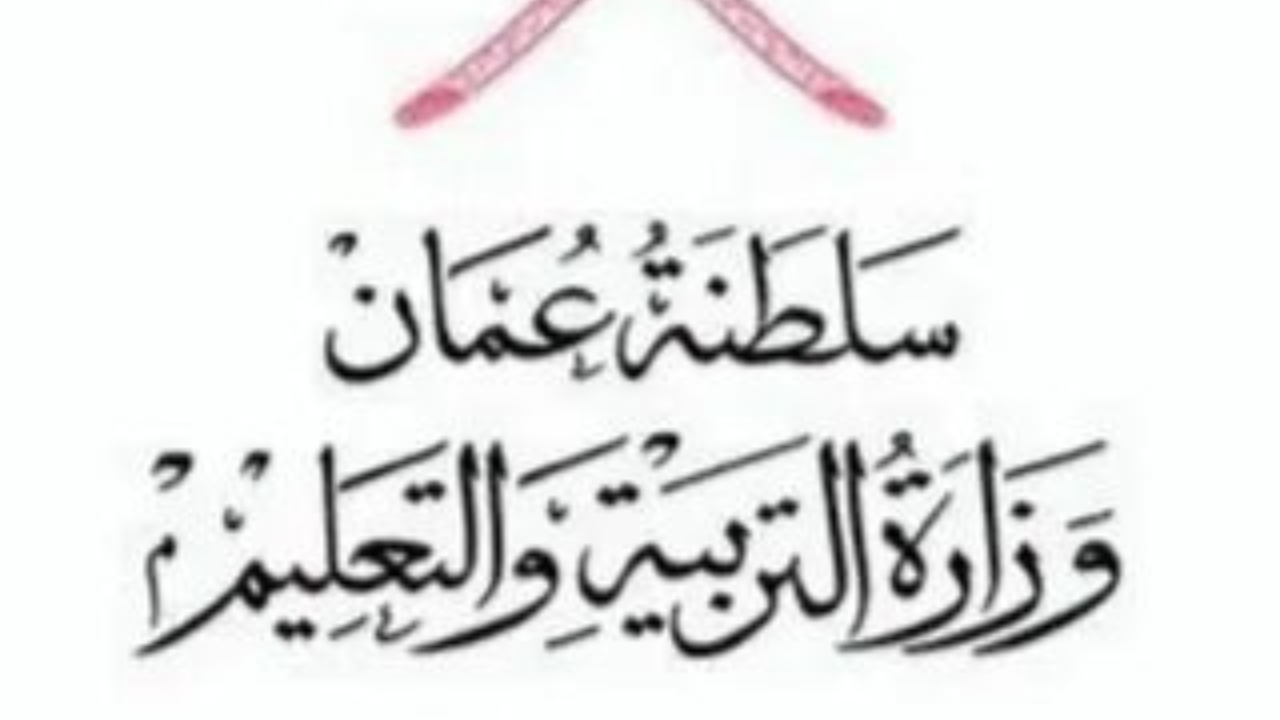 سَلطَنَةُ عُمَان
وَزَارَةُ التَربِيَةِ وَالتَعَلِيم